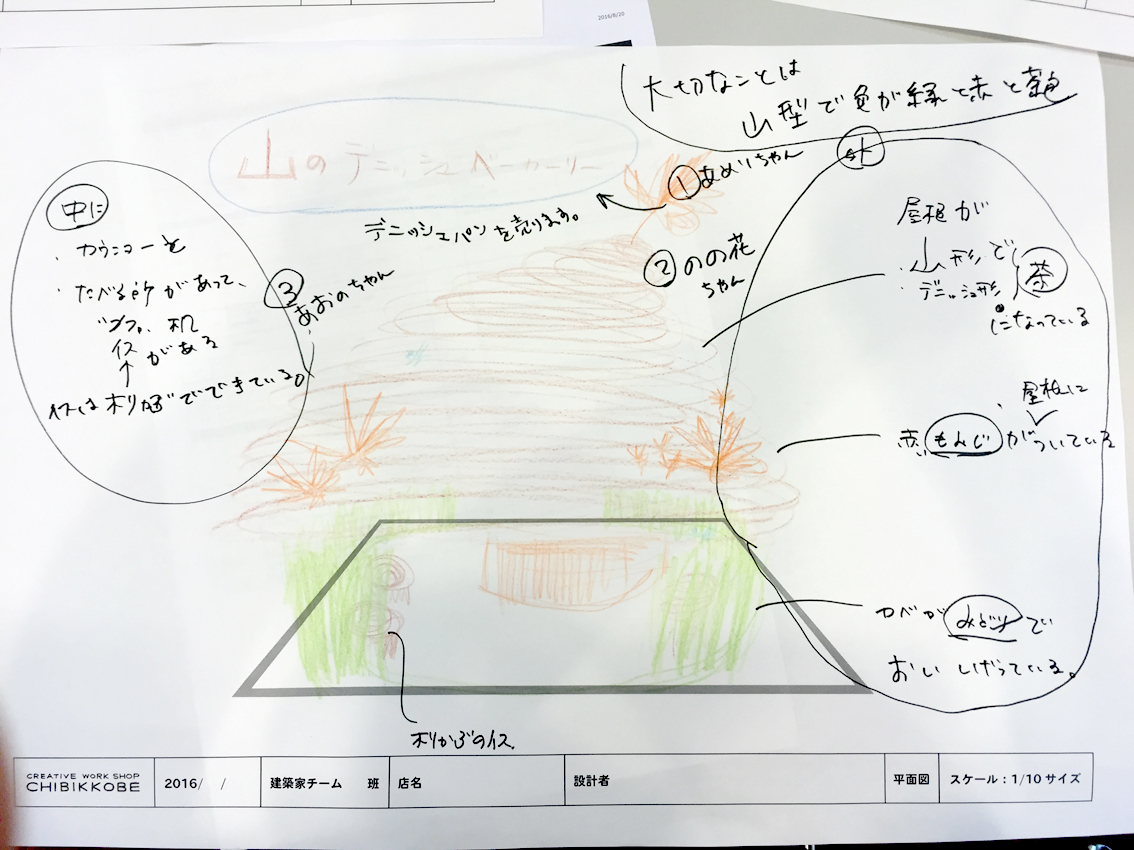 2016/8/20
大切なことは
山型で色が緑と赤と茶色
山のデニッシュベーカーリー
①あめりちゃん
デニッシュパンを売ります。
②のの花
ちゃん
③
あおのちゃん
中に
・カウンターと
・たべる所があって、
机
イスがある
↑
イスは木り株でできている。
外
屋根が
・山形で
・デニッシュ形
茶
になっている
、屋根に
赤いもんじがついている
カベがみどりで
おいしげっている。
木りかぶのイス
CREATIVE WORK SHOP
CHIBIKKOBE
2016/ /
建築家チーム 班
店名
設計者
平面図
スケール:1/10サイズ